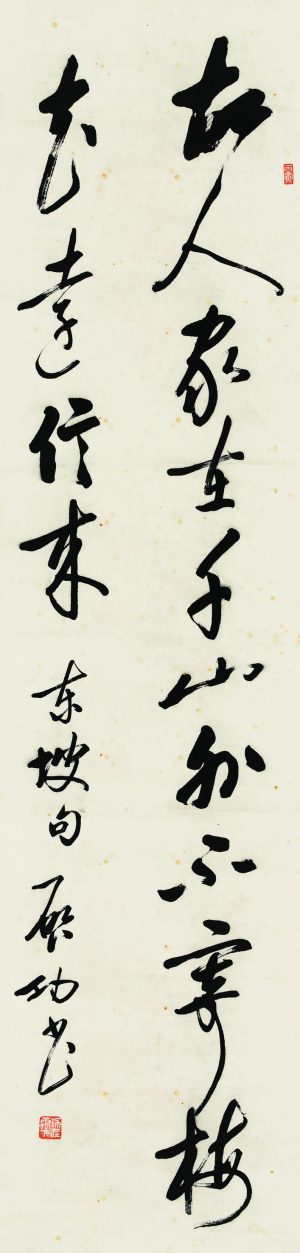 故人家在千山外不寄梅
花远信来东坡句启功书